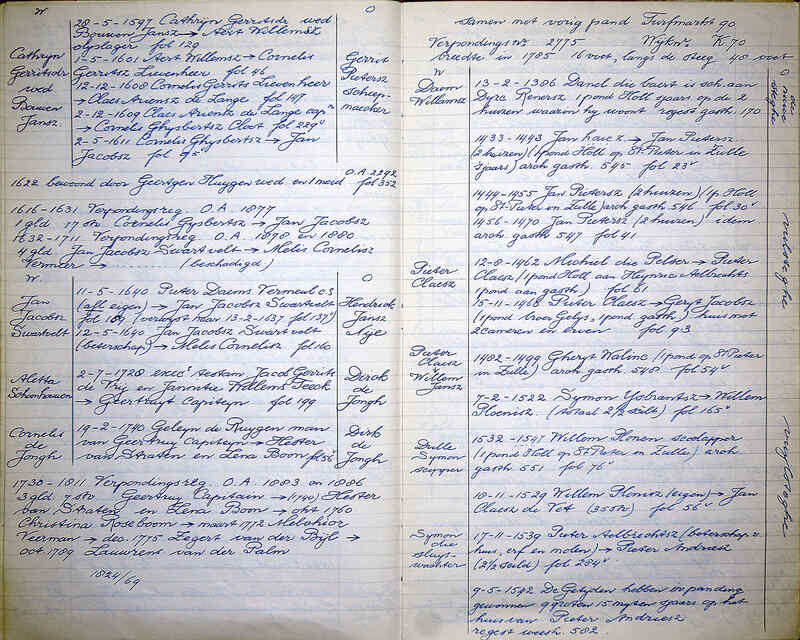 W O
28-5-1597 Cathrijn Gerritsdr wed
Bouwen Jansz → Aert Willemsz
olyslager fol 129
Cathryn
Gerritsdr
wed
Bauen
Jansz.
1-5-1601 Aert Willemsz → Cornelis
Gerritsz Lievenheer fol 46
12-12-1608 Cornelis Gerrits Lievenheer
→ Claes Ariensz de Lange fol 147
2-12-1609 Claes Ariensz de Lange
→ Cornelis Ghysbertsz Cloot fol 229
2-5-1611 Cornelis Ghysbertsz → Jan
Jacobsz fol 95
Gerrit
Pietersz
Scheep-
maecker
1622 bewoond door Geertgen Huygen wed en 1 meid O.A. 2292 fol 352
1616-1631 Verpondingsreg. O.A. 1877
1 gld 17 str Cornelis Gysbertsz → Jan Jacobsz
1632-1711 Verpondingsreg. O.A. 1878 en 1880
4 gld Jan Jacobsz Swartvelt → Melis Cornelisz
Vermeer → (beschadigd)
W O
Jan
Jacobsz
Swartvelt
11-5-1640 Pieter Daems Vermeul
(afl eigen) → Jan Jacobsz Swartvelt
fol 159 13-2-1637 fol 157
12-5-1640 Jan Jacobsz Swartvelt
(beterschap) → Melis Cornelisz fol 160
Hendrick
Jansz
Nye
Aletta
Schonhauen
2-7-1728 exec testam Jacob Gerrits
de Vrij en Jannitie Willems Teeck
→ Geertruyt Capiteyn fol 199
Dirck
de
Jongh
Cornelis
de
Jongh
19-2-1740 Geleyn de Ruygen man
van Geertruy Capiteyn → Hester
van Straten en Lena Boon fol 56
Dirk
de
Jongh
1730-1811 Verpondingsreg. O.A. 1883 en 1886
3 gld 7 str Geertruy Capitain → (1740) Hester
van Straten en Lena Boom → 1760
Christina Roseboom → maart 1772 Melchior
Veerman → dec. 1775 Zegert van der Bijl →
oct 1789 Lauwrens van der Palm
1824/69
Samen met vorig pand Turfmarkt 90
Verpondingsnr. 2775 Wijknr. K 70
breedte in 1785 16 voet, langs de steeg 48 voet
W O
Daem
Willemsz
13-2-1386 Danel die baert is sch. aan
Dirc Renersz 1 pond Holl sjaars op de 2
huizen waarin hij woont regest gasth. 170
1433-1443 Jan → Jan Pietersz
(2 huizen) (1 pond Holl op St Pieter in Zulle
sjaars) arch gasth. 545 fol 23
1444-1455 Jan Pietersz (2 huizen) (1 p. Holl
op St Pieter in Zulle) arch gasth 546 fol 30
1456-1470 Jan Pietersz (2 huizen) idem
arch. gasth 547 fol 41
Pieter
Claesz
12-8-1462 Michiel die Pelser → Pieter
Claesz (1 pond Holl aan Heynric Aelbrechts
1 pond aan gasth) fol 61
15-11-1468 Pieter Claesz → Geryt Jacobsz
(1 pond gasth.) huis met
2 cameren en erven fol 93
Pieter
Claesz
Willem
Jansz
1482-1499 Gheryt Walinc (1 pond op St Pieter
in Zulle) arch. gasth. 548 fol 54
7-2-1522 Symon Ysbrantsz → Willem
Ploenisz (totaal 2½ scilt) fol 165
Dulle
Symon
scipper
1532-1547 Willem Plonen scoelapper
(1 pond Holl op St Pieter in Zulle) arch
gasth 551 fol 76
18-11-1529 Willem Plonisz (eigen) → Jan
Claesz de Vet (355 R) fol 56
Symon
die
sluys-
wachter
17-11-1539 Pieter Aelbrechtsz (beterschap v
huis, erf en molen) → Pieter Andriesz
(2½ scild) fol 284
9-5-1542 De Getijden hebben inpanding
gewonnen 9 groten 15 myten sjaars op het
huis van Pieter Andriesz
regest weesh. 582.
de
nuwe
steghe